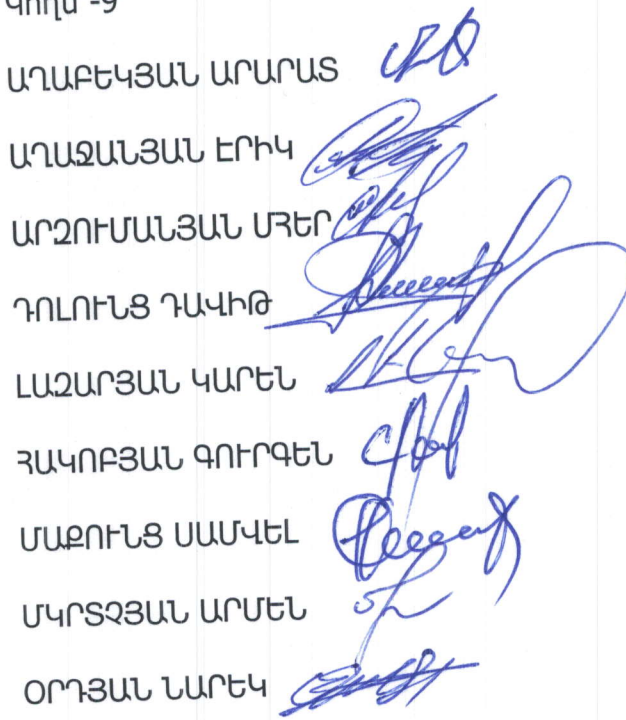 Կողմ -9
ԱՂԱԲԵԿՅԱՆ ԱՐԱՐԱՏ
ԱՂԱՋԱՆՅԱՆ ԷՐԻԿ
ԱՐԶՈՒՄԱՆՅԱՆ ՄՀԵՐ
ԴՈԼՈՒՆՑ ԴԱՎԻԹ
ԼԱԶԱՐՅԱՆ ԿԱՐԵՆ
ՀԱԿՈԲՅԱՆ ԳՈՒՐԳԵՆ
ՄԱՔՈՒՆՑ ՍԱՄՎԵԼ
ՄԿՐՏՉՅԱՆ ԱՐՄԵՆ
ՕՐԴՅԱՆ ՆԱՐԵԿ